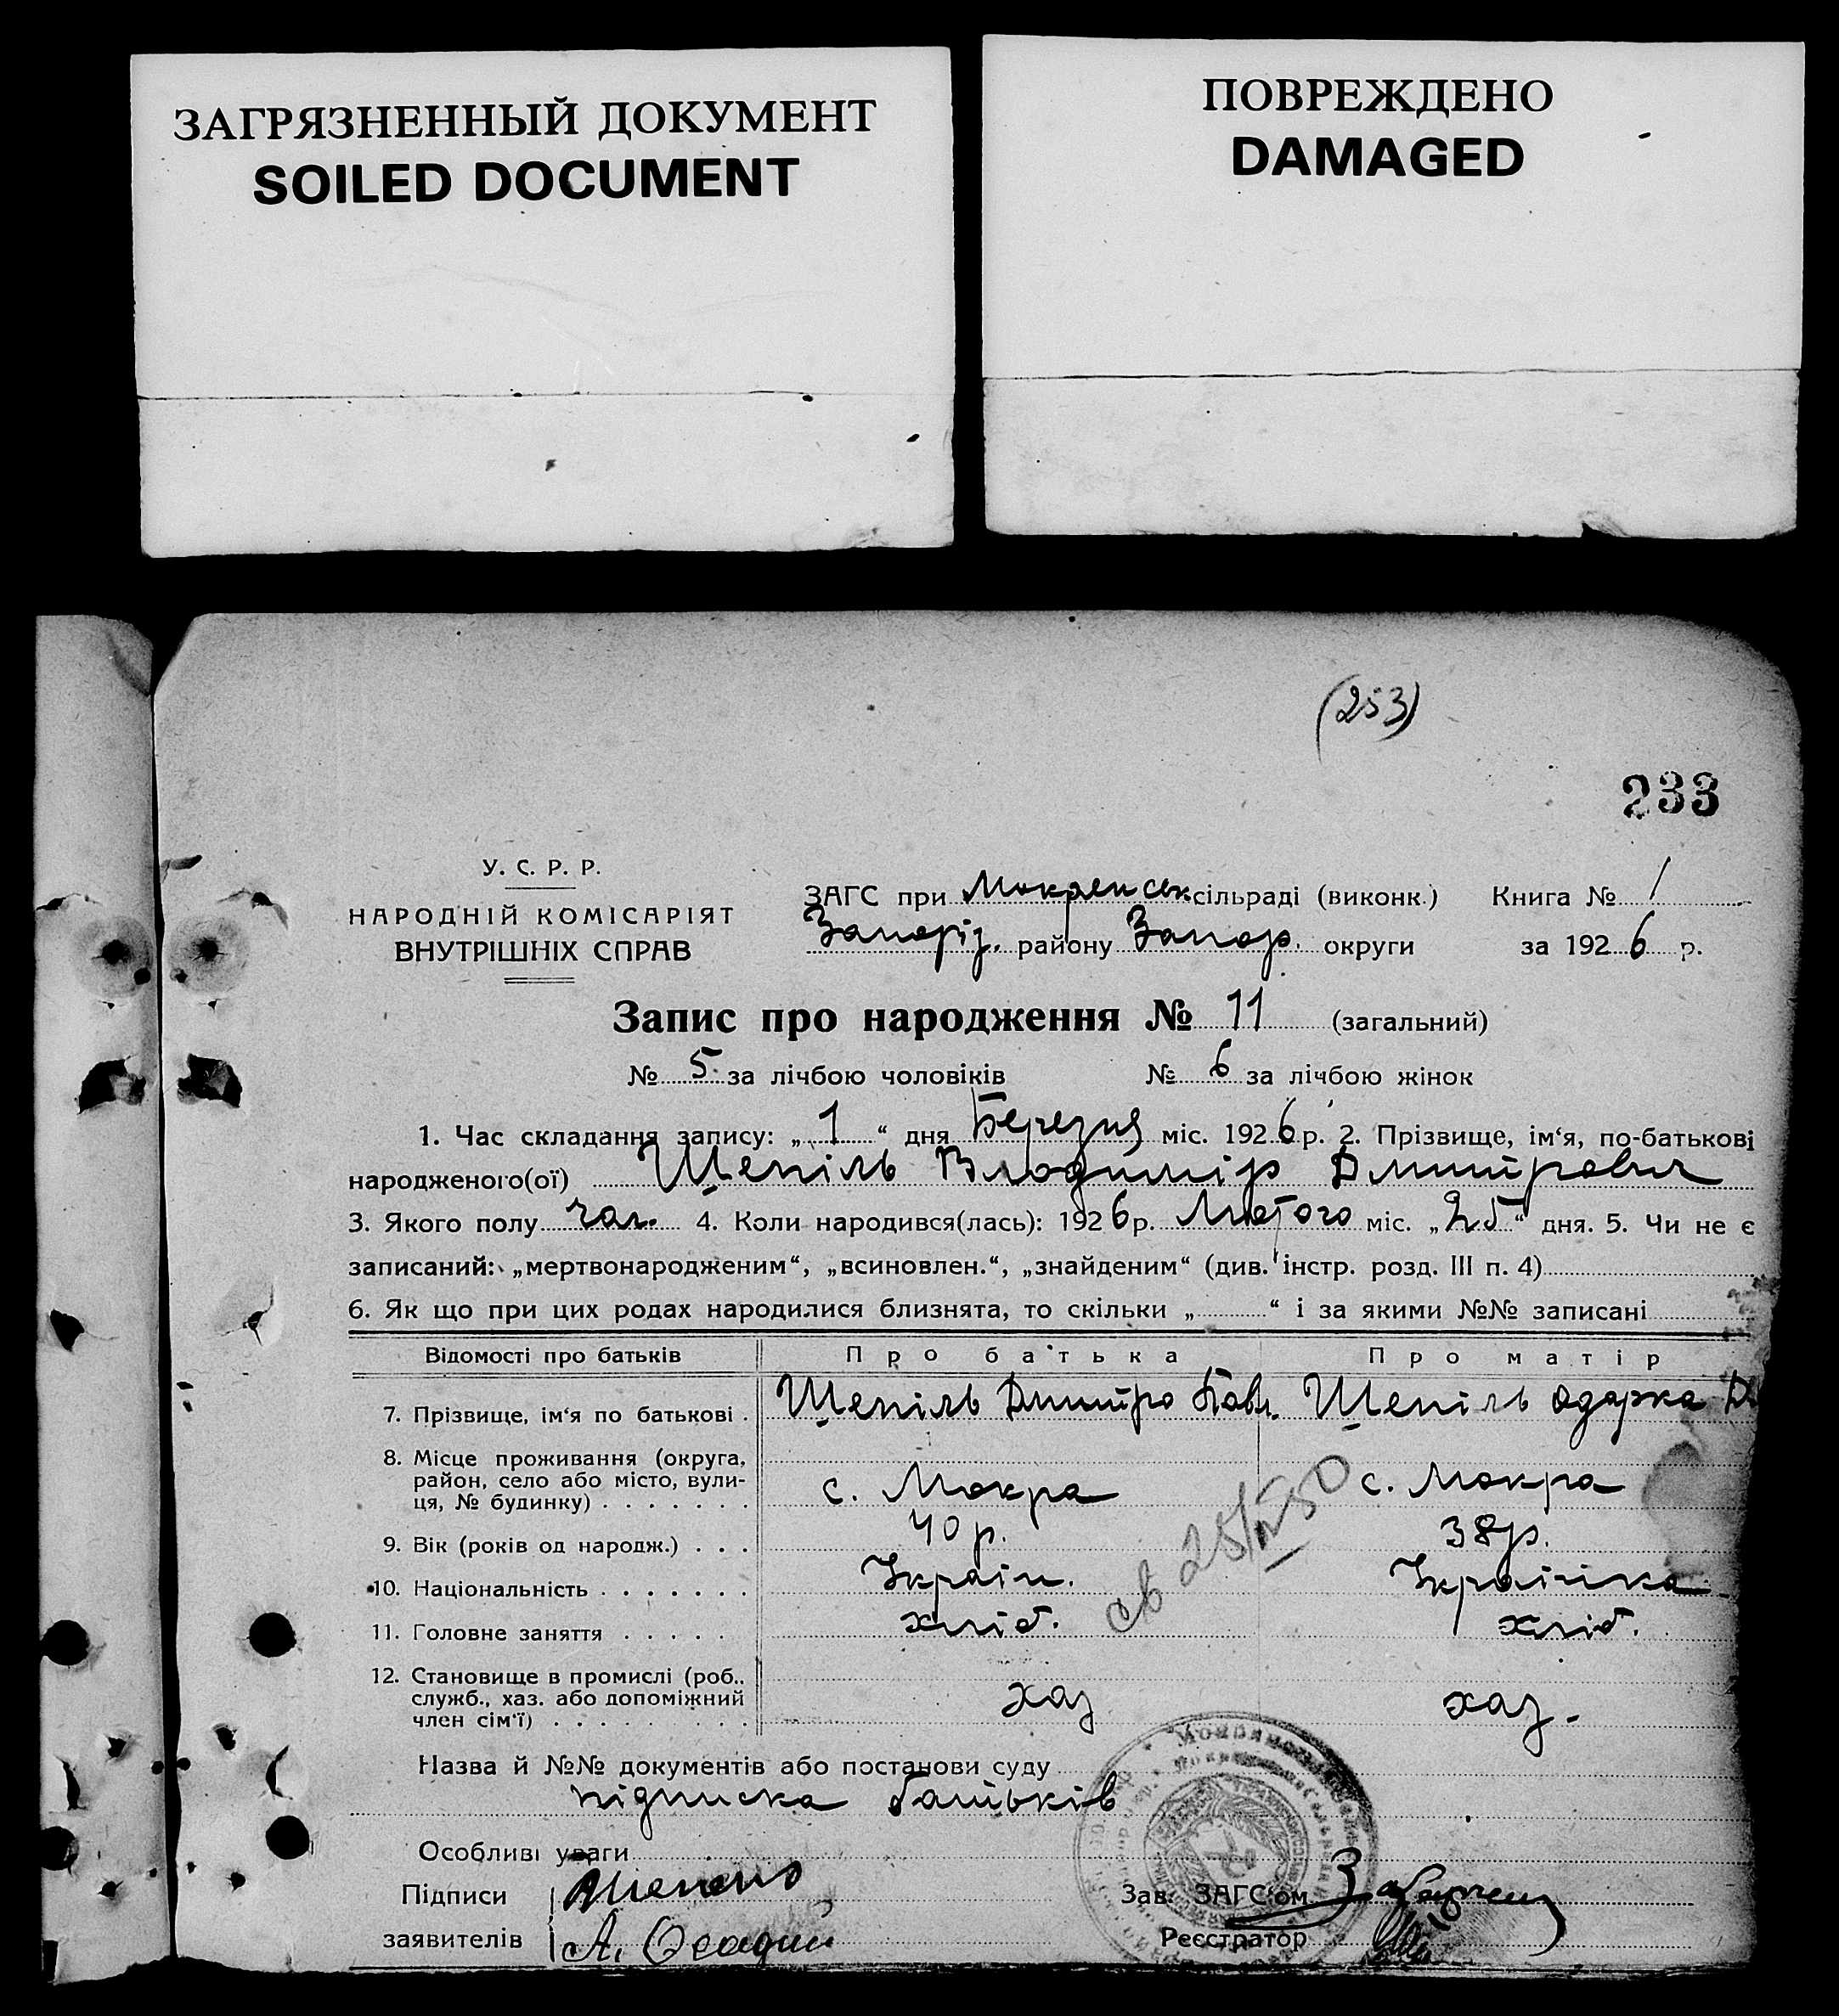 ЗАГРЯЗНЕННЫЙ ДОКУМЕНТ
SOILED DOCUMENT
ПОВРЕЖДЕНО
DAMAGED
(253)
233
У. С. Р. Р.
НАРОДНІЙ КОМІСАРІЯТ
ВНУТРІШНІХ СПРАВ
ЗАГС при Мокрянськ сільраді (виконк.) Книга № 1
Запоріз. району Запор. округи за 1926 р.
Запис про народження № 11 (загальний)
№ 5 за лічбою чоловіків № 6 за лічбою жінок
1. Час складання запису: „1“ дня Березня міс. 1926 р. 2. Прізвище, ім‘я, по-батькові
народженого(ої) Шепіль Влодимір Дмитрович
3. Якого полу чол. 4. Коли народився(лась): 1926 р. Лютого міс. „25“ дня. 5. Чи не є
записаний: „мертвонародженим“, „всиновлен.“, „знайденим“ (див. інстр. розд. III п. 4)
6. Як що при цих родах народилися близнята, то скільки „ “ і за якими №№ записані
Відомості про батьків Про батька Про матір
7. Прізвище, ім‘я по батькові. Шепіль Дмитро Павл. Шепіль Одарка
8. Місце проживання (округа, район, село або місто, вулиця, № будинку) с. Мокра с. Мокра
9. Вік (років од народж.) 40 р. 38 р.
10. Національність Україн. Українка
11. Головне заняття хліб. хліб.
12. Становище в промислі (роб., служб., хаз. або допоміжний член сім‘ї) хаз хаз.
Назва й №№ документів або постанови суду
підписка батьків
Особливі уваги
Підписи
заявителів А. Осадчий
Зав. ЗАГС‘ом
Реєстратор